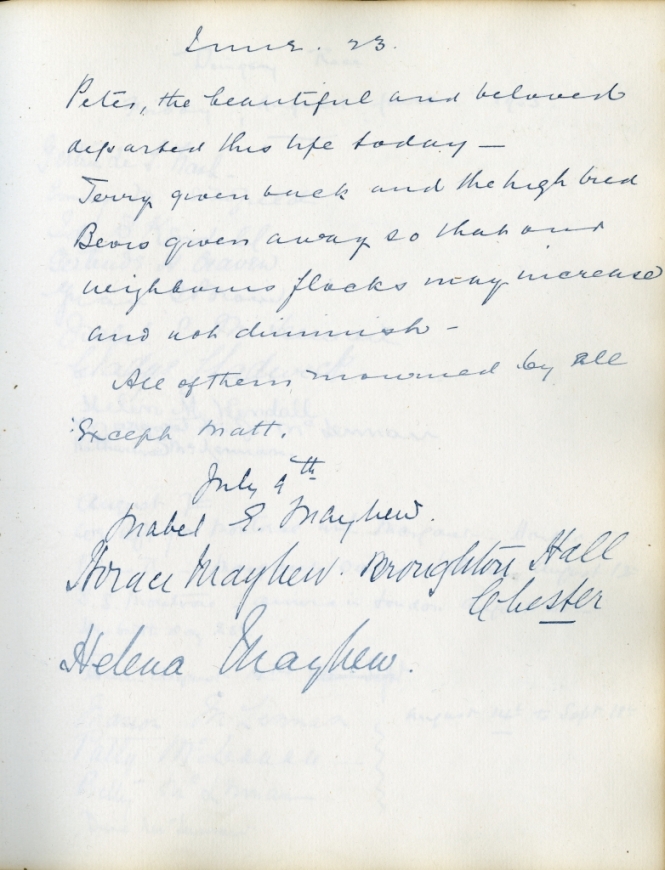 June. 23.
Peter, the beautiful and beloved
departed this life today —
Terry given back and the high bred
Bevis given away so that our
neighbours flocks may increase
and not diminish -
All of them mourned by all
Except Matt.
July 9th
Mabel E. Mayhew.
Horace Mayhew. Broughton Hall
Chester
Helena Mayhew.